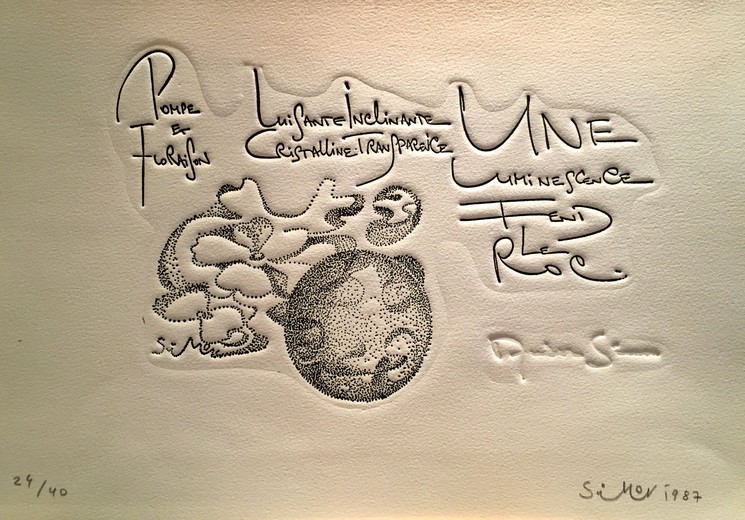 Pompe
et
Floraison
Luisante Inclinante
Cristalline-Transparence
UNE
Luminescence
Fend
Le
Roc.
SiMON
24/40
SiMON 1987